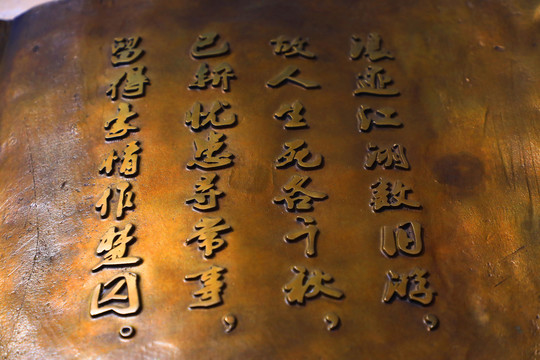 浪迹江湖数旧游，
故人生死各千秋，
已斩忧患寻常事，
留得豪情作楚囚。